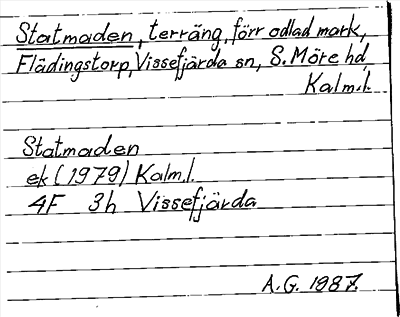 Statmaden, terräng, förr odlad mark,
Flädingstorp, Vissefjärda sn, S. Möre hd,
Kalm.l.
Statmaden
ek (1979) Kalm.l.
4F 3h Vissefjärda
A.G. 1987.